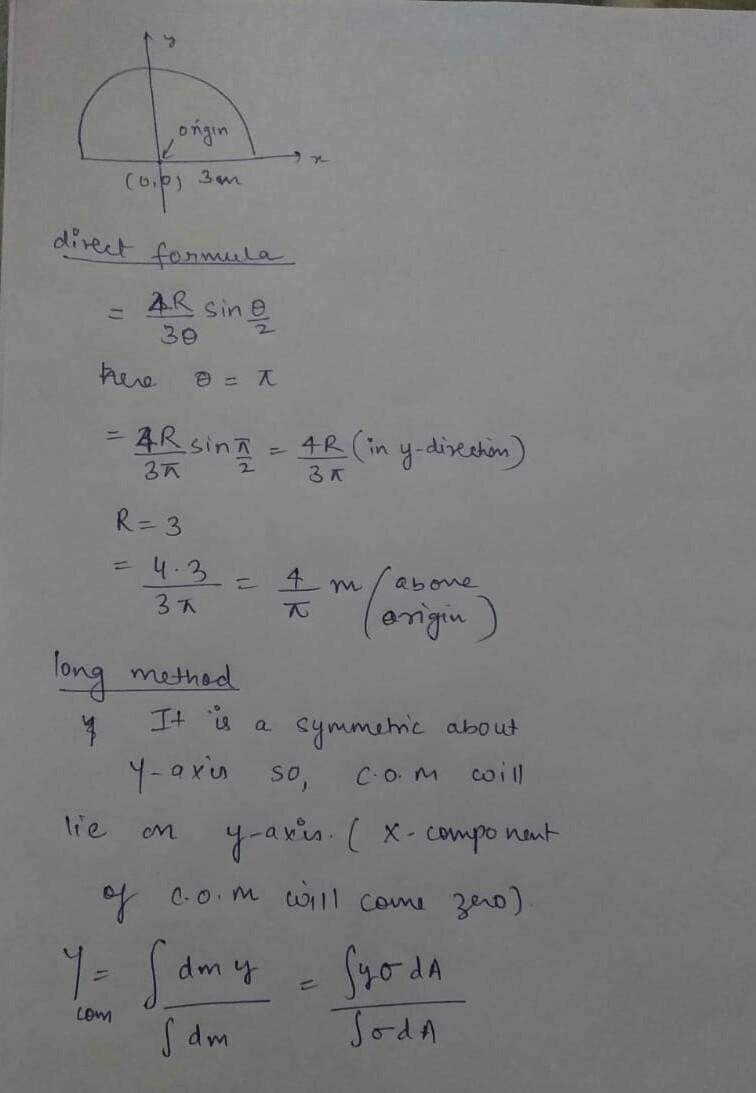 y
origin
x
(0,0) 3m
direct formula
= 4R/3θ sin θ/2
here θ = π
= 4R/3π sin π/2 = 4R/3π (in y-direction)
R = 3
= 4.3/3π = 4/π m (above origin)
long method
It is a symmetric about
y-axis so, C.O.M will
lie on y-axis. ( X-component
of C.O.M will come zero).
Y com = ∫ dm y / ∫ dm = ∫ y σ dA / ∫ σ dA